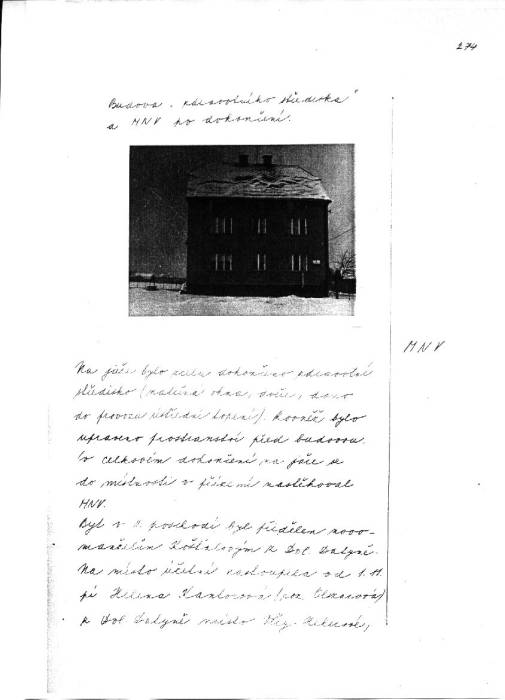 274
Budova „zdravotního střediska"
a MNV po dokončení.
MNV
Na jaře bylo zcela dokončeno zdravotní
středisko (natřena okna, dveře, dáno
do provozu ústřední topení). Rovněž bylo
upraveno prostranství před budovou.
Po celkovém dokončení na jaře se
do místnosti v přízemí nastěhoval
MNV.
Byt v I. poschodí byl přidělen novo-
manželům
Na místo účetní nastoupila od 1.
pí Helena Kantorová
z Dol. Datyně místo